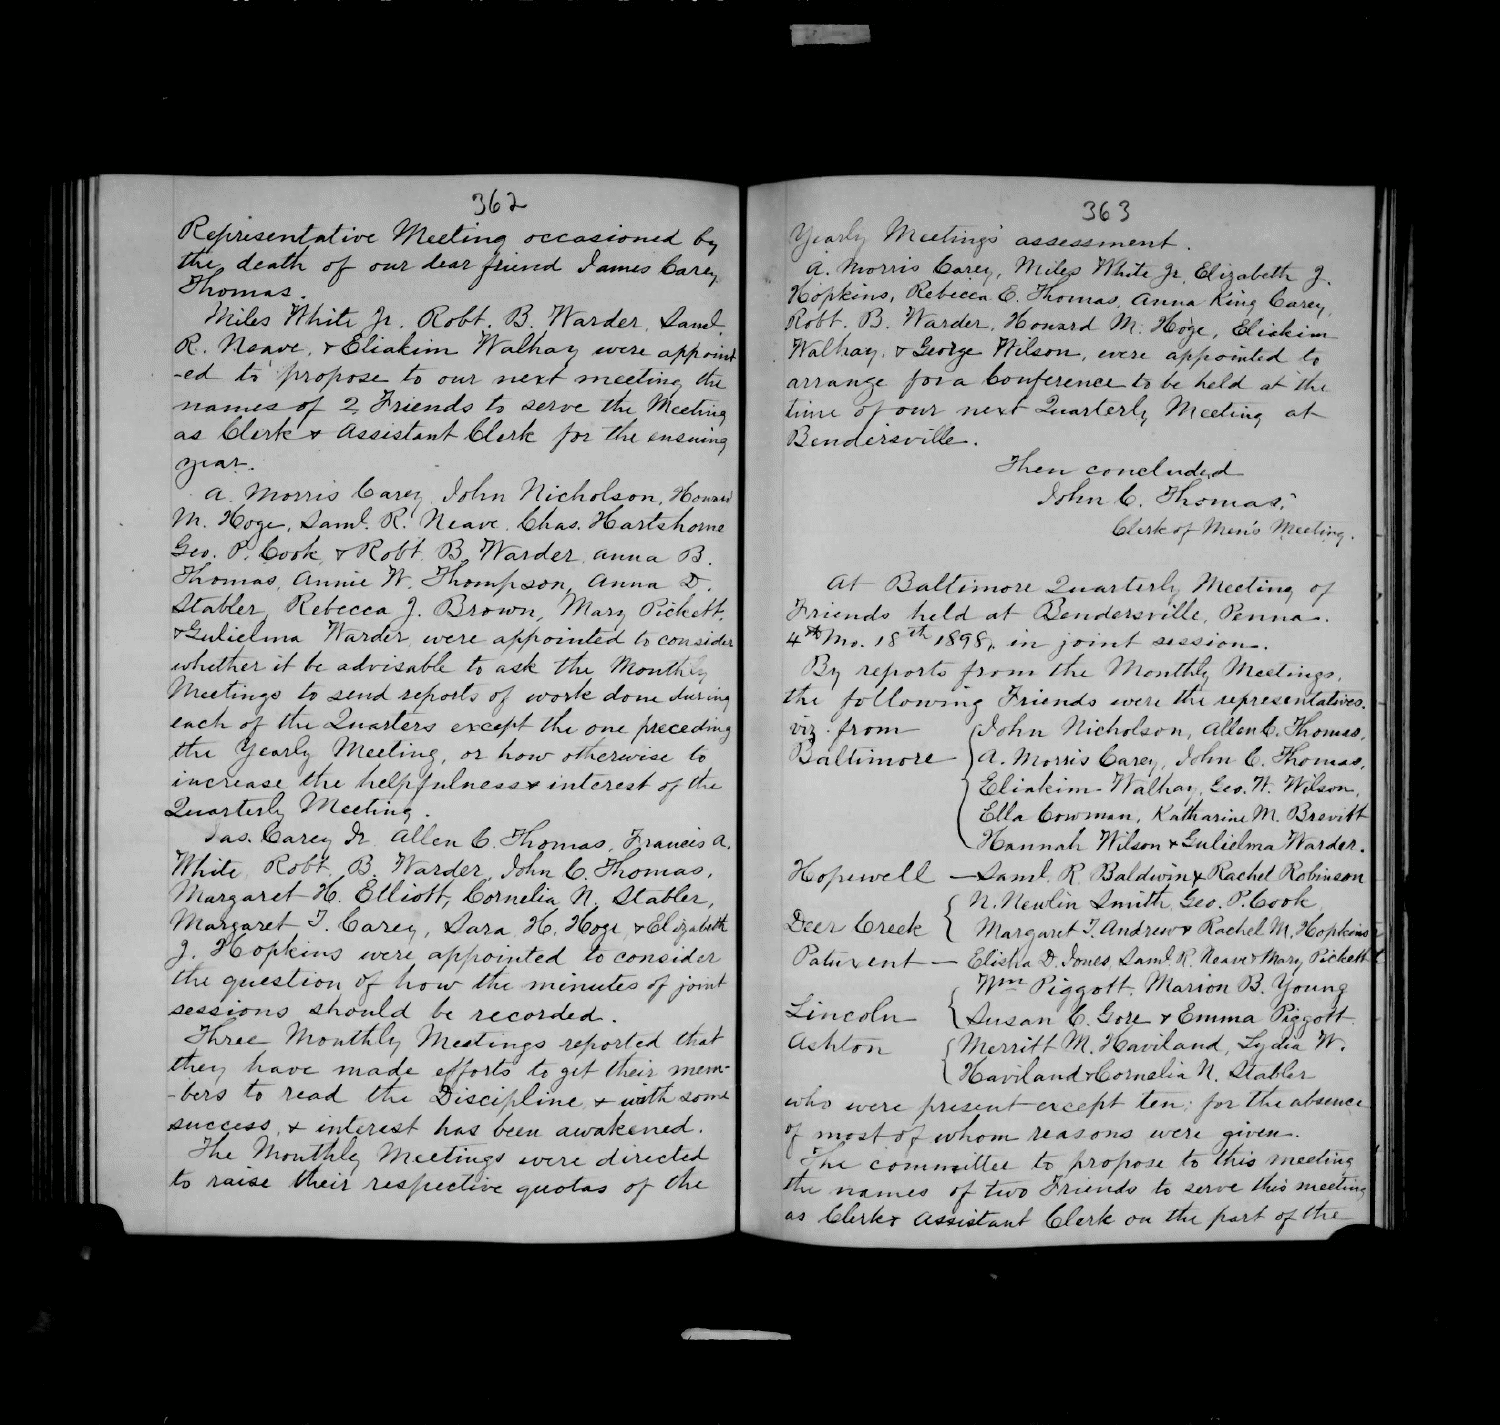 362
Representative Meeting occasioned by
the death of our dear friend James Carey
Thomas.
Miles White Jr. Robt. B. Warder, Saml.
R. Neave, & Eliakim Walhay were appoint
-ed to propose to our next meeting the
names of 2 Friends to serve the Meeting
as Clerk & Assistant Clerk for the ensuing
year.
A. Morris Carey, John Nicholson, Howard
M. Hoge, Saml. R. Neave, Chas. Hartshorne
Geo. P. Cook, & Robt. B. Warder, Anna B.
Thomas, Annie W. Thompson, Anna D.
Stabler, Rebecca J. Brown, Mary Pickett,
& Gulielma Warder, were appointed to consider
whether it be advisable to ask the Monthly
Meetings to send reports of work done during
each of the Quarters except the one preceding
the Yearly Meeting, or how otherwise to
increase the helpfulness & interest of the
Quarterly Meeting.
Jas. Carey Jr. Allen C. Thomas, Francis A.
White, Robt. B. Warder, John C. Thomas,
Margaret H. Elliott, Cornelia N. Stabler,
Margaret T. Carey, Sara H. Hoge, & Elizabeth
J. Hopkins were appointed to consider
the question of how the minutes of joint
sessions should be recorded.
Three Monthly Meetings reported that
they have made efforts to get their mem-
-bers to read the Discipline & with some
success, & interest has been awakened.
The Monthly Meetings were directed
to raise their respective quotas of the
363
Yearly Meeting's assessment.
A. Morris Carey, Miles White Jr, Elizabeth J.
Hopkins, Rebecca C. Thomas, Anna King Carey,
Robt. B. Warder, Howard M. Hoge, Eliakim
Walhay, & George Wilson, were appointed to
arrange for a Conference to be held at the
time of our next Quarterly Meeting at
Bendersville.
Then concluded
John C. Thomas,
Clerk of Men's Meeting.
At Baltimore Quarterly Meeting of
Friends held at Bendersville, Penna.
4th Mo. 18th 1898, in joint session.
By reports from the Monthly Meetings,
the following Friends were the representatives.
viz. from John Nicholson, Allen C. Thomas,
Baltimore A. Morris Carey, John C. Thomas,
Eliakim Walhay, Geo. W. Wilson,
Ella Cowman, Katharine M. Brevitt
Hannah Wilson & Gulielma Warder.
Hopewell — Saml. R. Baldwin & Rachel Robinson
N. Newlin Smith, Geo. P. Cook,
Deer Creek Margaret T. Andrew & Rachel M. Hopkins
Patuxent — Elisha D. Jones, Saml. R. Neave & Mary Pickett
Wm Piggott, Marion B. Young
Lincoln Susan C. Gore & Emma Piggott
Ashton Merritt M. Haviland, Lydia W.
Haviland & Cornelia N. Stabler
who were present except ten; for the absence
of most of whom reasons were given.
The committee to propose to this meeting
the names of two Friends to serve this meeting
as Clerk & Assistant Clerk on the part of the